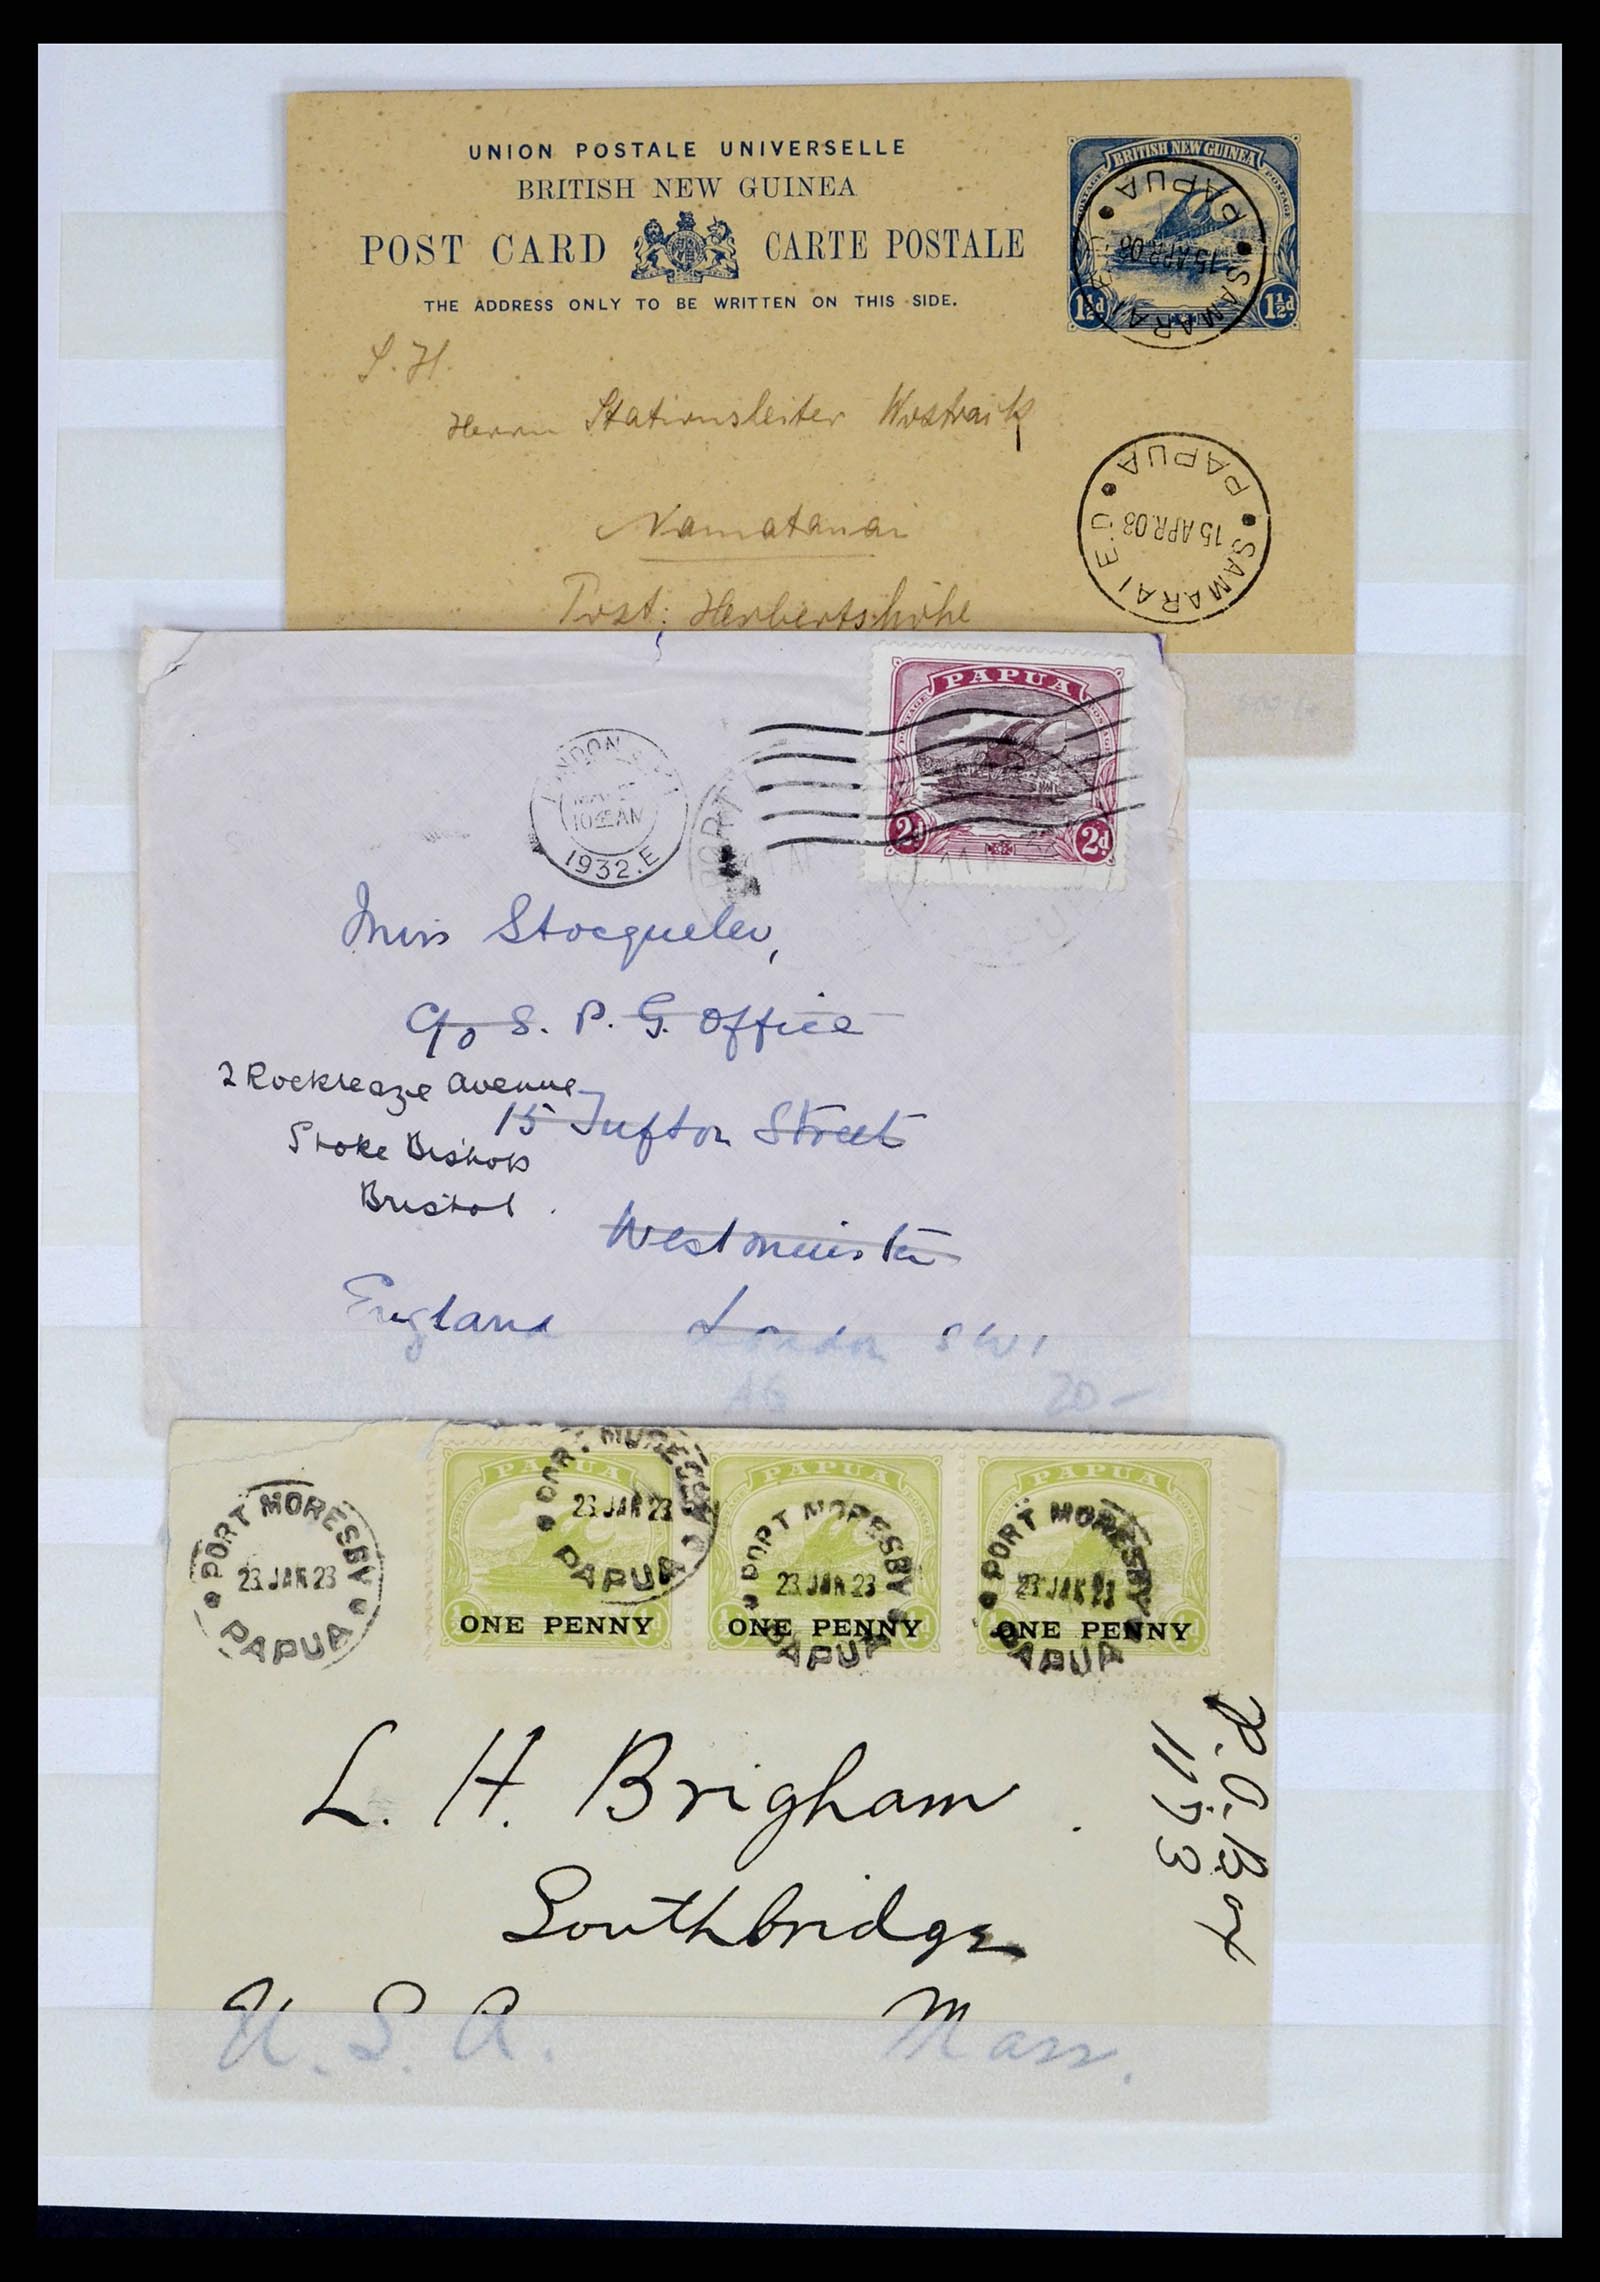 UNION POSTALE UNIVERSELLE
BRITISH NEW GUINEA
POST CARD CARTE POSTALE
THE ADDRESS ONLY TO BE WRITTEN ON THIS SIDE.
BRITISH NEW GUINEA
POSTAGE POSTAGE
1½d 1½d
SAMARAI E.D PAPUA
15 APR.08
S. H.
Herrn Stationsleiter Wostrack
Namatanai
Post: Herbertshöhe
SAMARAI E.D PAPUA
15 APR.08
PAPUA
POSTAGE POSTAGE
2d 2d
LONDON
10 45 AM
1932.E
PORT
Miss Stocqueler,
c/o S. P. G. Office
2 Rockleaze Avenue
15 Tufton Street
Stoke Bishop
Bristol.
Westminster
England London SW1
AG 20-
PORT MORESBY
23 JAN 23
PAPUA
PAPUA
ONE PENNY
PORT MORESBY
23 JAN 23
PAPUA
PAPUA
ONE PENNY
PORT MORESBY
23 JAN 23
PAPUA
PAPUA
ONE PENNY
PORT MORESBY
23 JAN 23
PAPUA
L. H. Brigham.
Southbridge
U. S. A. Mass.
P. O. Box
1153